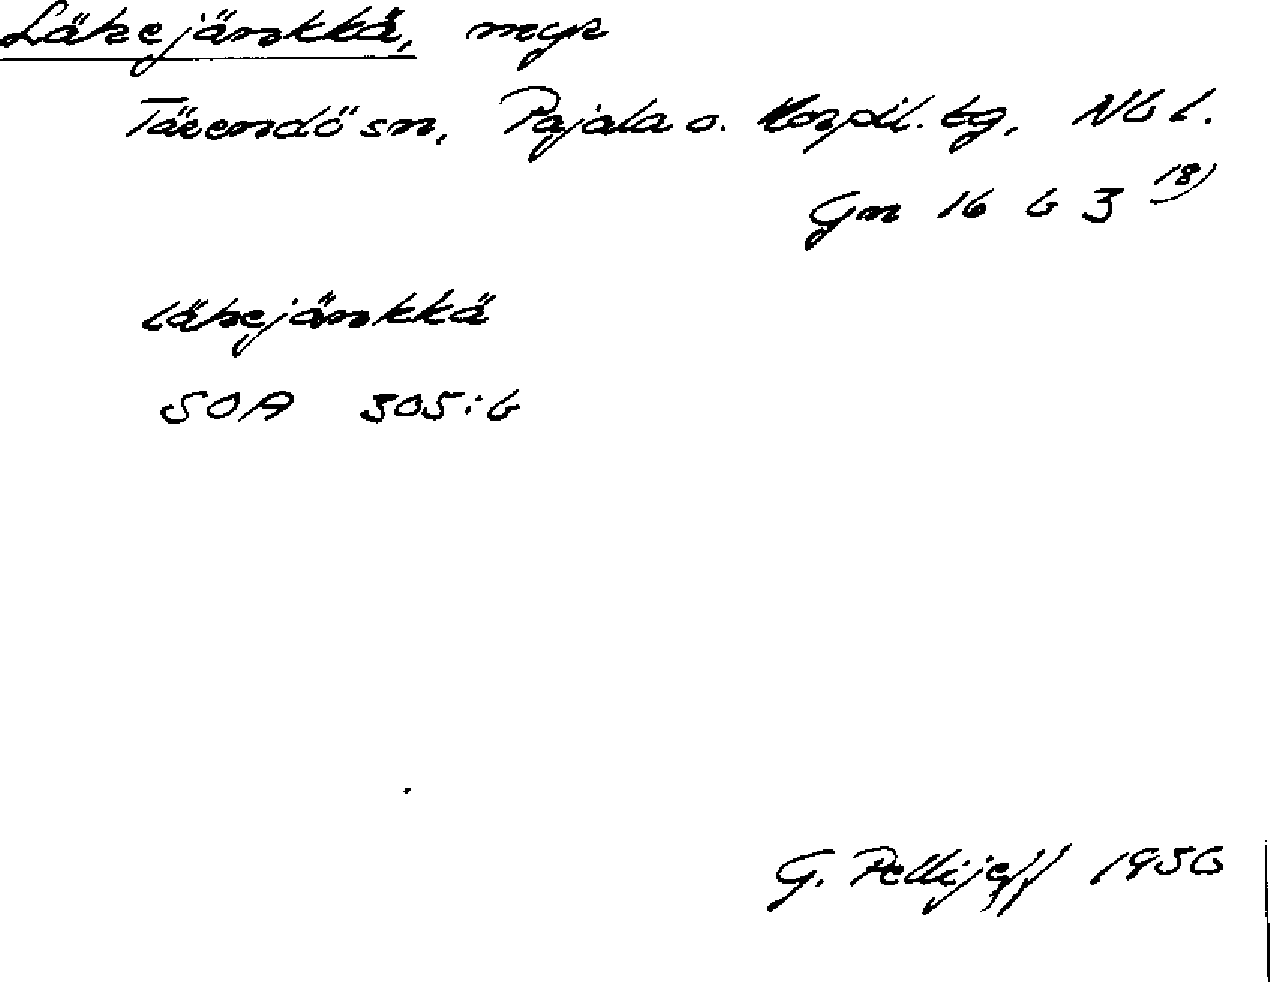 Lähejänkkä, myr
Tärendö sn, Pajala o. Korpil. tg, Nb l.
Gn 16 b 3 18)
lähejänkkä
SOA 305:6
G. Pellijeff 1956